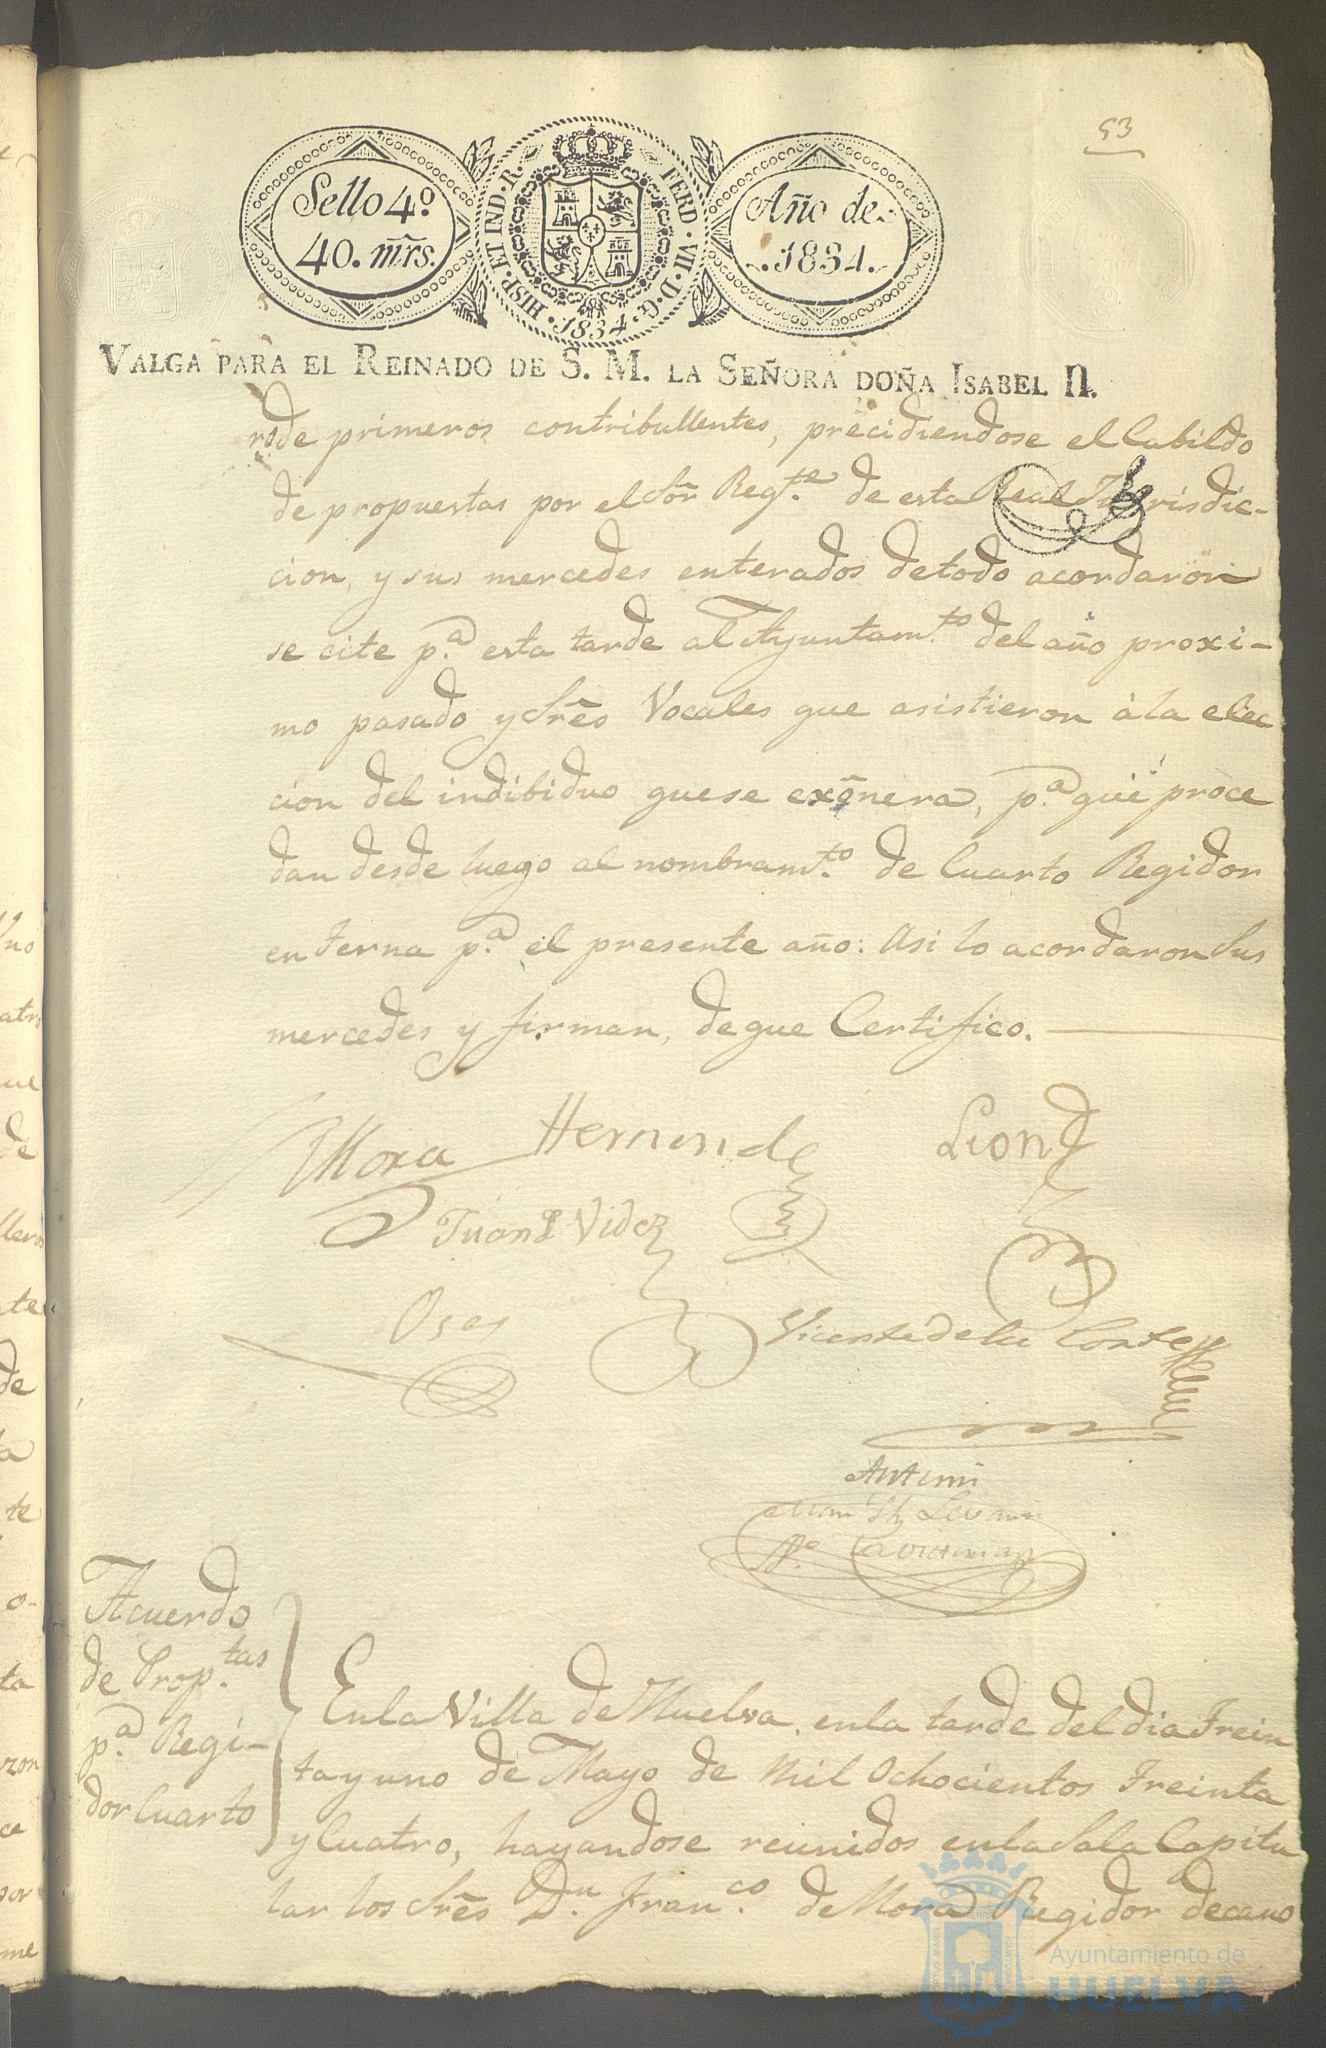 53
Sello 4º
40. mrs.
HISP. ET IND. R. FERD. VII. D. G. 1834.
Año de
1834.
VALGA PARA EL REINADO DE S. M. LA SEÑORA DOÑA ISABEL II.
de primeros contribullentes, precidiendose el Cabildo
de propuestas por el Sõr Reg.te de esta Real Jurisdic-
cion, y sus mercedes enterados de todo acordaron
se cite p.a esta tarde al Ayuntam.to del año proxi-
mo pasado y Srẽs Vocales que asistieron à la elec
cion del indibiduo que se exonera, p.a que proce
dan desde luego al nombram.to de Cuarto Regidor
en terna p.a el presente año: Asi lo acordaron Sus
mercedes y firman, de que Certifico.
Mora Hernand Lion
Juan Videz
Oses
Vicente de la Corte
Antemi
Acuerdo
de Prop.tas
p.a Regi-
dor Cuarto
En la Villa de Huelva en la tarde del dia trein
ta y uno de Mayo de mil ochocientos treinta
y Cuatro, hayandose reunidos en la Sala Capitu
lar los Srẽs D.n Fran.co de Mora Regidor decano
Ayuntamiento de
HUELVA